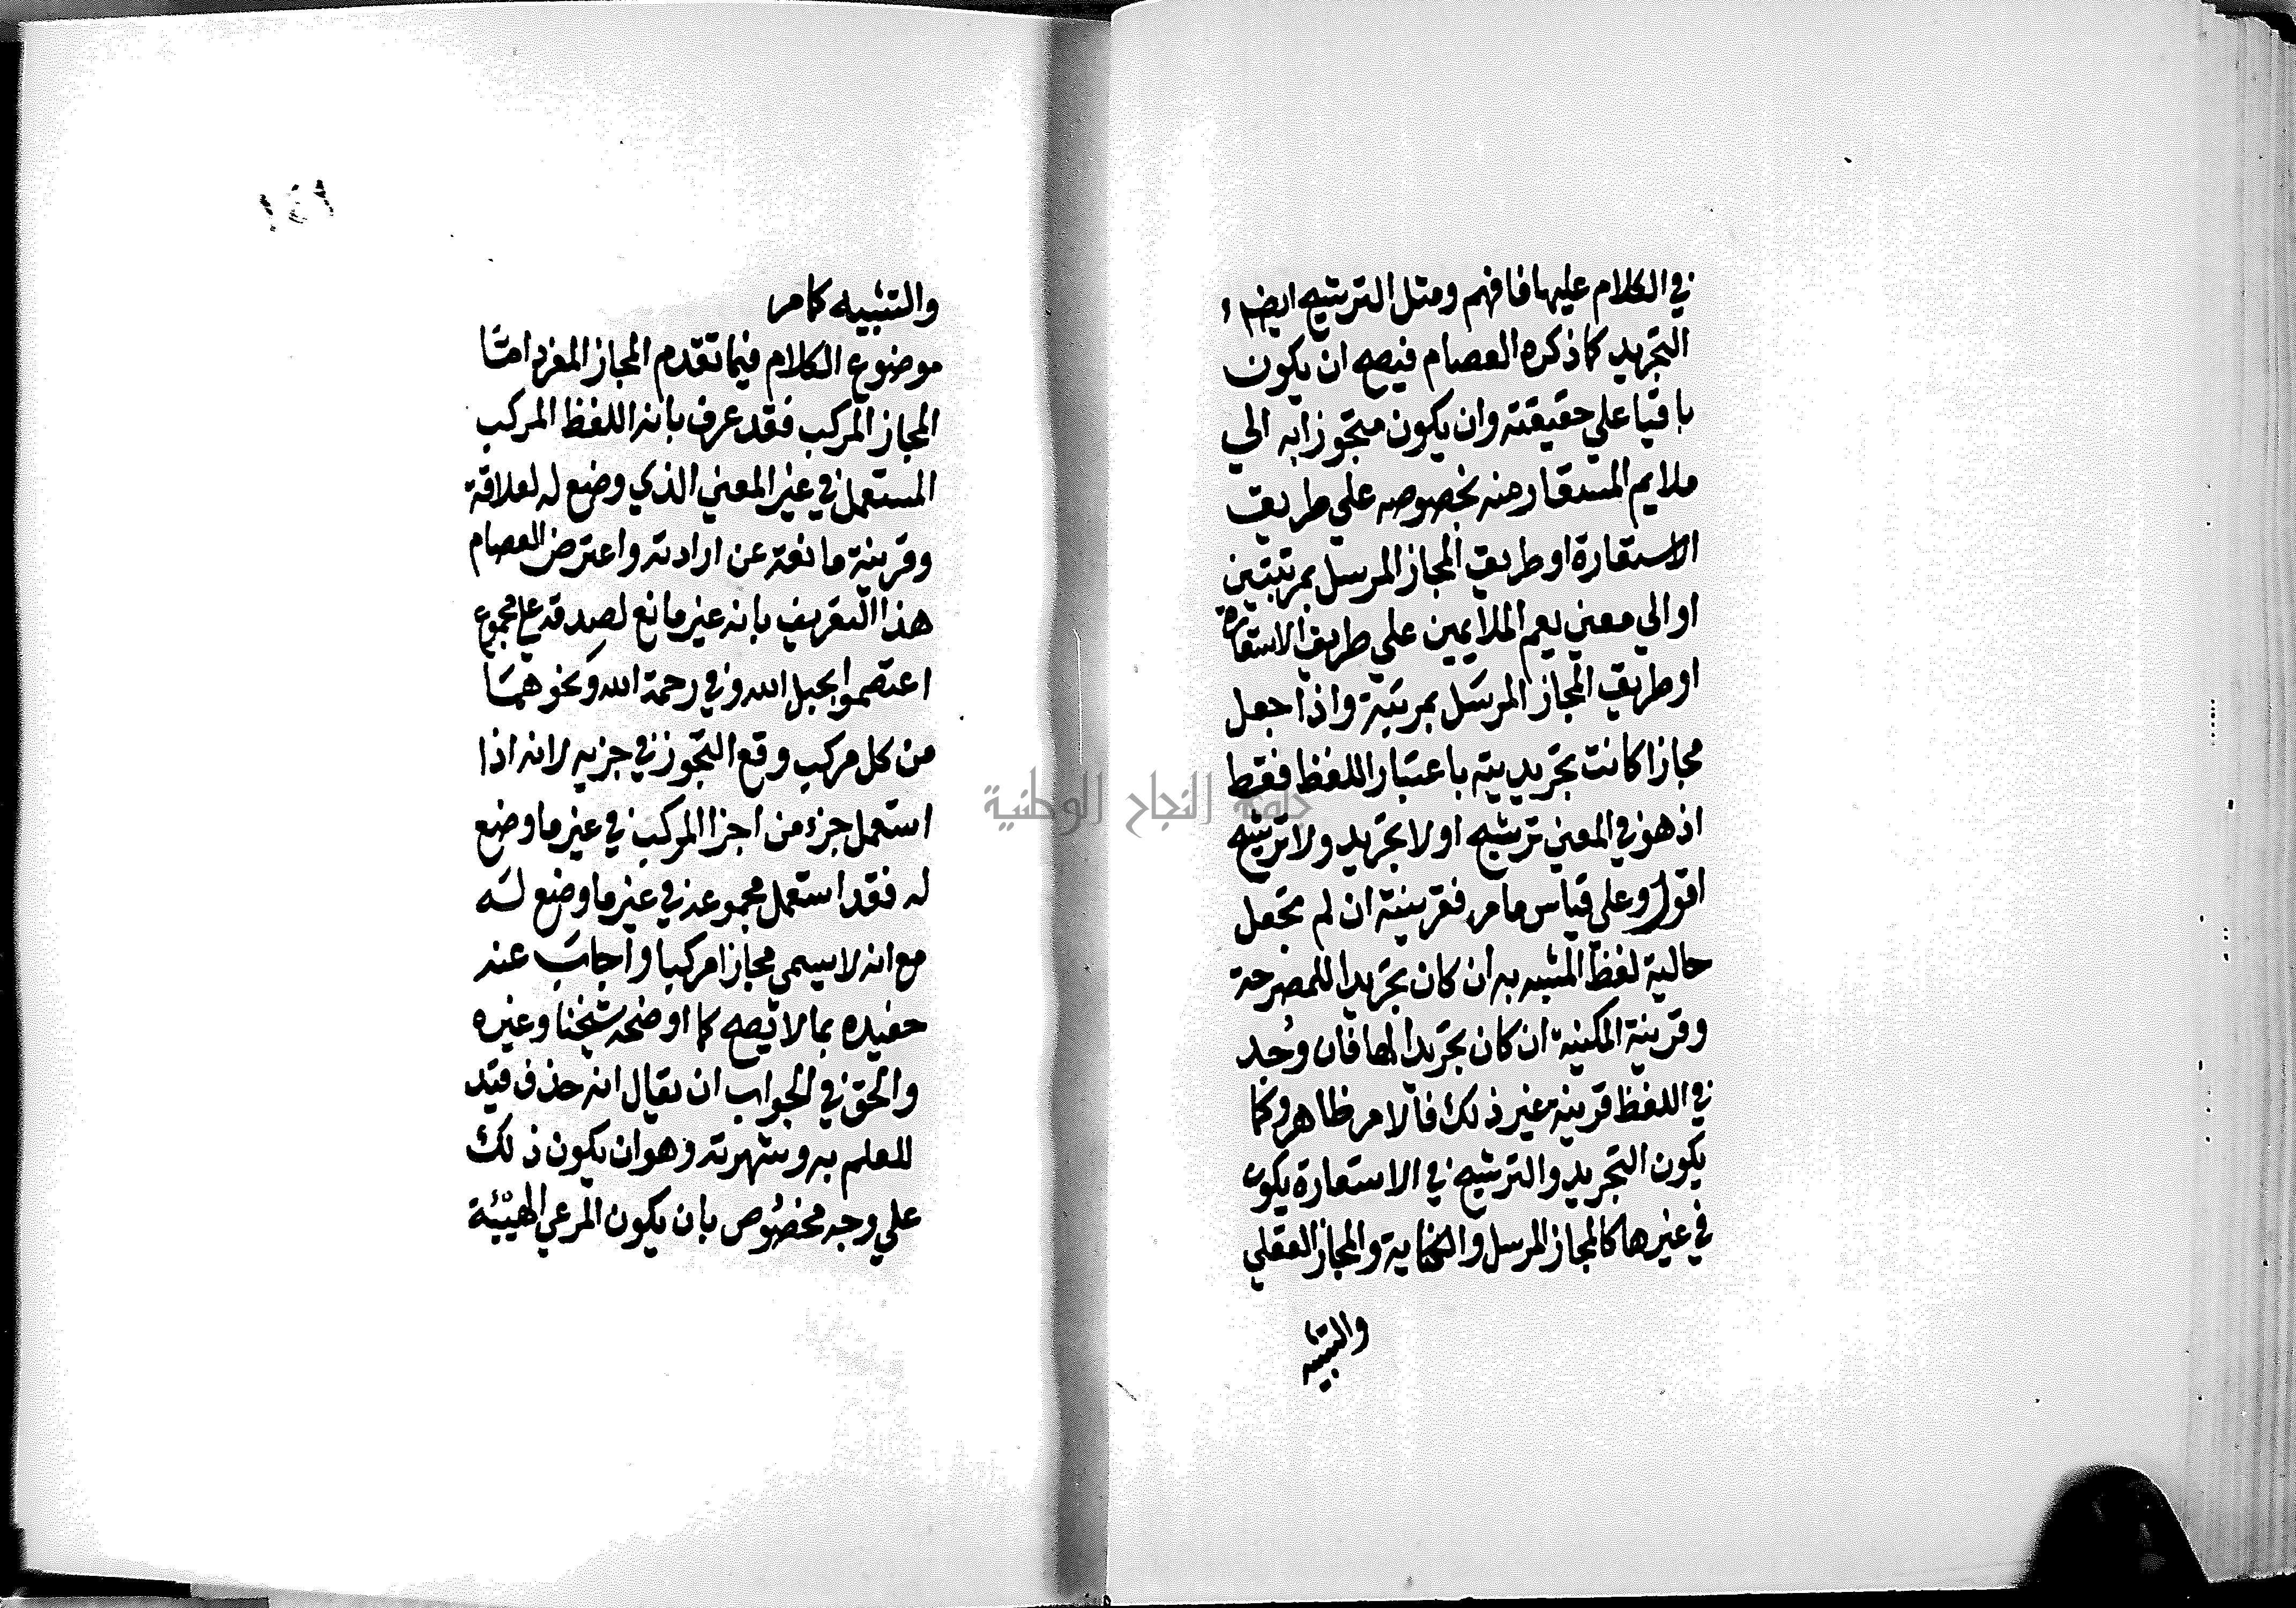 في الكلام عليها فافهم ومثل الترشيح ايضا
التجريد كما ذكره العصام فيصح ان يكون
باقيا علي حقيقته وان يكون متجوزا به الي
ملايم المستعار منه بخصوصه علي طريق
الاستعارة او طريق المجاز المرسل بمرتبتين
او الي معني يعم الملايمين علي طريق الاستعارة
او طريق المجاز المرسل بمرتبة واذا جعل
مجازا كانت تجريديته باعتبار اللفظ فقط
اذ هو في المعني ترشيح او لا تجريد ولا ترشيح
اقول وعلي قياس ما مر فقرينته ان لم تجعل
حالية لفظ المشبه به ان كان تجريدا للمصرحة
وقرينة المكنية ان كان تجريدا لها فان وُجد
في اللفظ قرينة غير ذلك فالامر ظاهر وكما
يكون التجريد والترشيح في الاستعارة يكون
في غيرها كالمجاز المرسل والكناية والمجاز العقلي
والتشبيه
١٤٢
والتشبيه كما مر
موضوع الكلام فيما تقدم المجاز المفرد امّا
المجاز المركب فقد عرف بانه اللفظ المركب
المستعمل في غير المعني الذي وضع له لعلاقة
وقرينة مانعة عن ارادته واعترض العصام
هذا التعريف بانه غير مانع لصدقه علي مجموع
اعتصموا بحبل الله وفي رحمة الله ونحوهما
من كل مركب وقع التجوز في جزيه لانه اذا
استعمل جزء من اجزا المركب في غير ما وضع
له فقد استعمل مجموعه في غير ما وضع له
مع انه لا يسمي مجازا مركبا واجاب عنه
حفيده بما لا يصح كما اوضحه شيخنا وغيره
والحق في الجواب ان يقال انه حذف قيد
للعلم به وشهرته وهو ان يكون ذلك
علي وجه مخصُوص بان يكون المرعي الهيئة
جامعة النجاح الوطنية